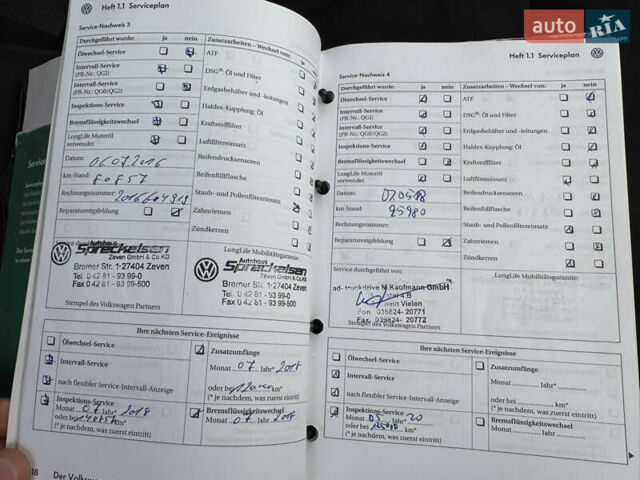 auto RIA .com
Heft 1.1 Serviceplan
Service-Nachweis 3
Durchgeführt wurde: ja nein
Zusatzarbeiten – Wechsel von: ja nein
Ölwechsel-Service
ATF
Intervall-Service
(PR-Nr.: QG1)
DSG®: Öl und Filter
Intervall-Service
(PR-Nr.: QG0/QG2)
Erdgasbehälter und -leitungen
Inspektions-Service
Haldex-Kupplung: Öl
Bremsflüssigkeitswechsel
Kraftstofffilter
LongLife Motoröl
verwendet
Luftfiltereinsatz
Datum: 06.07.2016
Reifendruckssensoren
km-Stand:
Reifenfüllflasche
Rechnungsnummer:
Staub- und Pollenfiltereinsatz
Reparaturempfehlung
Zahnriemen
Zündkerzen
LongLife Mobilitätsgarantie:
Autohaus
Spreckelsen
Zeven GmbH & Co KG
Bremer Str. 1-27404 Zeven
Tel. 0 42 81 - 93 99-0
Fax 0 42 81 - 93 99-500
Autohaus
Spreckelsen
Zeven GmbH & Co KG
Bremer Str. 1-27404 Zeven
Tel. 0 42 81 - 93 99-0
Fax 0 42 81 - 93 99-500
Stempel des Volkswagen Partners
Ihre nächsten Service-Ereignisse
Ölwechsel-Service
Zusatzumfänge
Monat 07 Jahr* 2018
oder bei km*
(* je nachdem, was zuerst eintritt)
Intervall-Service
nach flexibler Service-Intervall-Anzeige
Inspektions-Service
Monat 07 Jahr* 2018
oder bei km*
(* je nachdem, was zuerst eintritt)
Bremsflüssigkeitswechsel
Monat 07 Jahr* 2018
18
Heft 1.1 Serviceplan
Service-Nachweis 4
Durchgeführt wurde: ja nein
Zusatzarbeiten – Wechsel von: ja nein
Ölwechsel-Service
ATF
Intervall-Service
(PR-Nr.: QG1)
DSG®: Öl und Filter
Intervall-Service
(PR-Nr.: QG0/QG2)
Erdgasbehälter und -leitungen
Inspektions-Service
Haldex-Kupplung: Öl
Bremsflüssigkeitswechsel
Kraftstofffilter
LongLife Motoröl
verwendet
Luftfiltereinsatz
Datum: 07.05.18
Reifendrucksensoren
km-Stand: 95980
Reifenfüllflasche
Rechnungsnummer:
Staub- und Pollenfiltereinsatz
Reparaturempfehlung
Zahnriemen
Zündkerzen
Service durchgeführt von:
LongLife Mobilitätsgarantie:
ad-truckdrive M.Kaufmann GmbH
Vielen
Fon. 039824- 20771
Fax. 039824- 20772
Stempel des Volkswagen Partners
Ihre nächsten Service-Ereignisse
Ölwechsel-Service
Zusatzumfänge
Monat Jahr*
oder bei km*
(* je nachdem, was zuerst eintritt)
Intervall-Service
nach flexibler Service-Intervall-Anzeige
Inspektions-Service
Monat 05 Jahr* 20
oder bei km*
(* je nachdem, was zuerst eintritt)
Bremsflüssigkeitswechsel
Monat Jahr*